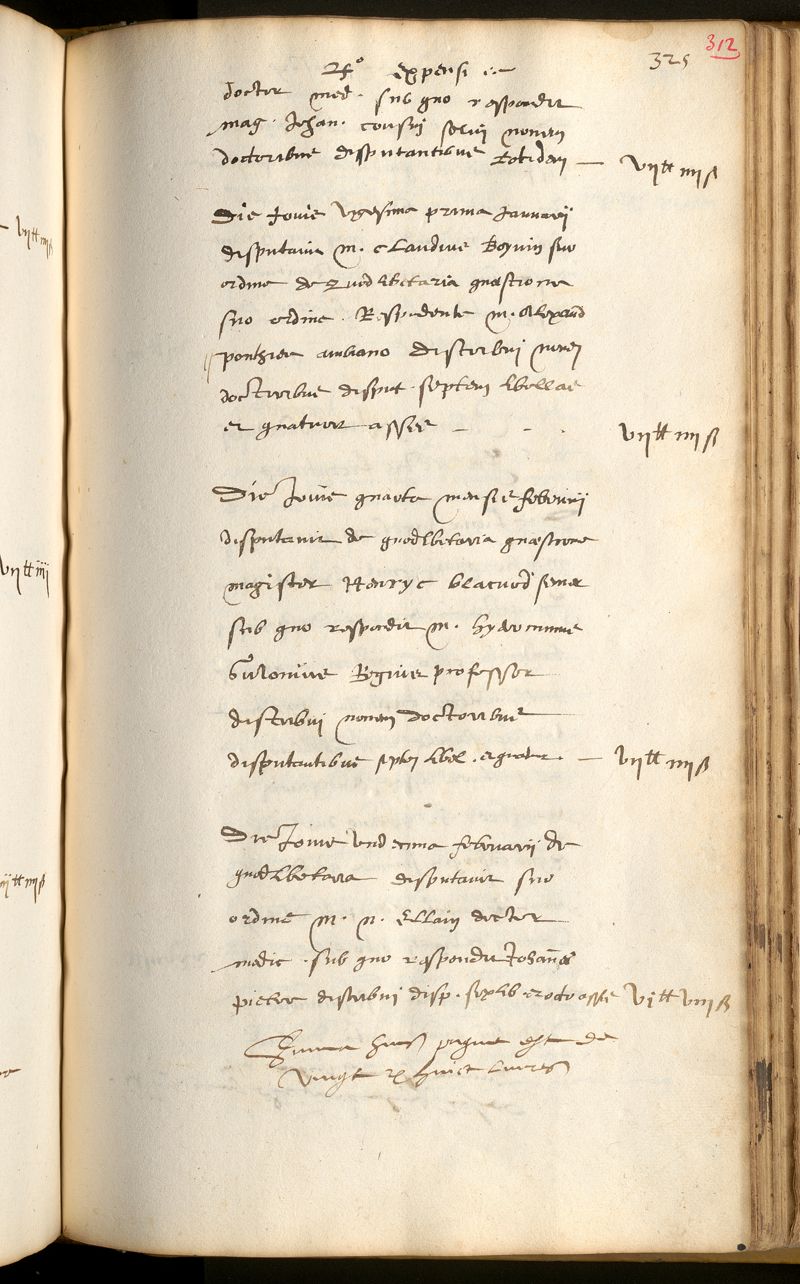 325 312
expensi
doctor med. sub quo respondit
mag. Johan. cousin solvi novem
doctoribus disputantibus totidem — vii tt iiii ß
Die Jovis vigesima prima Januarii
disputavit m. Claudius Boyvin suo
ordine de quodlibetaria quaestione
suo ordine. Respondente m. Alexand
ponthier ambiano distribui novem
doctoribus disput. septem libellas
et quatuor asses — vii tt iiii ß
Die Jovis quarta mensis februarii
disputavit de quodlibetaria quaestione
magister Henryc blacvod senior
sub quo respondit m. hyeronimus
Regius professor
distribui novem doctoribus
disputantibus septem libel. et quatuor. — vii tt iiii ß
Die Jovis undecima februarii de
quodlibetaria disputavit suo
ordine m. n. Ellain doctor
medic. sub quo respondit Johannes
pietre distribui disp. sex lib. et octo asses vi tt viii ß
Summa huius pagine est de
vingt et huict livres